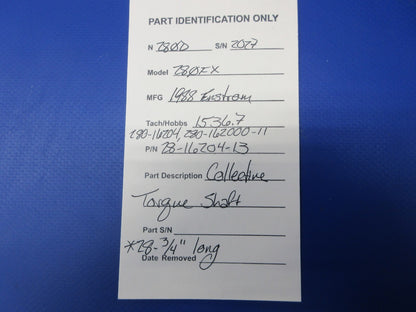 PART IDENTIFICATION ONLY
N 280D S/N 2027
Model 280FX
MFG 1988 Enstrom
Tach/Hobbs 1536.7
280-16204, 280-162000-11
P/N 28-16204-13
Part Description Collective
Torque Shaft
Part S/N
*28-3/4" long
Date Removed